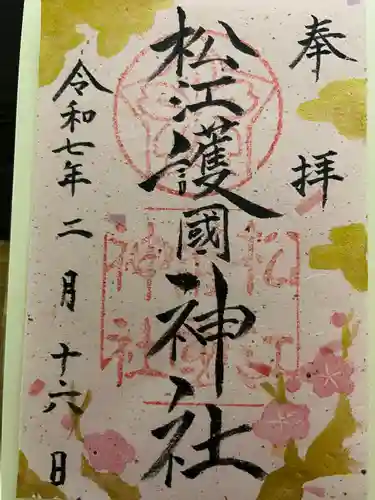 奉拝
松江護國神社
令和七年二月十六日
松江
護國
神社